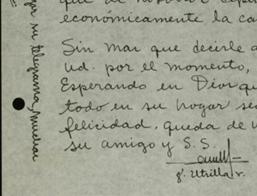 que de
económicamente la ca
Sin mas que decirle a
Ud. por el momento,
Esperando en Dios qu
todo en su hogar se
felicidad, queda de u
su amigo y S. S.
J. Utrilla r.
su telegrama, muchas